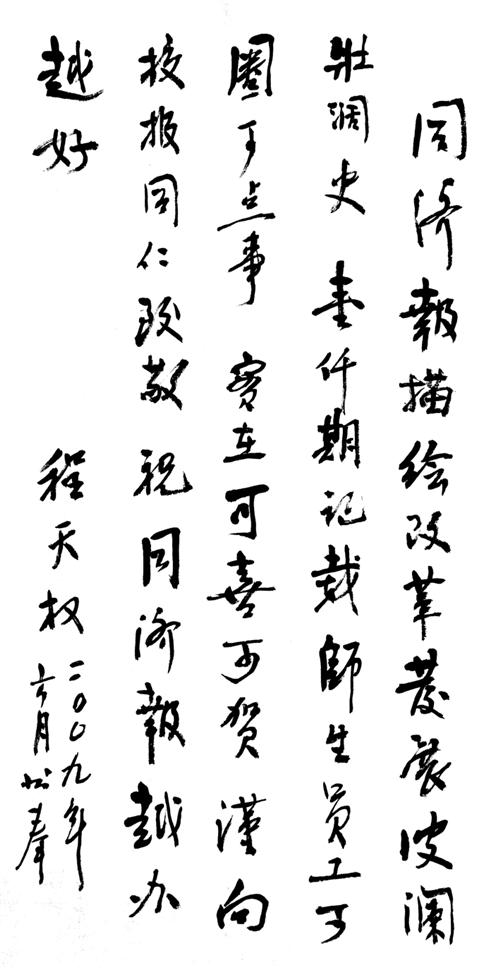 同济報描绘改革發展波澜
壮濶史 壹仟期记载師生员工可
圈可点事 实在可喜可贺 谨向
校报同仁致敬 祝同济報越办
越好 程天权
二〇〇九年
六月